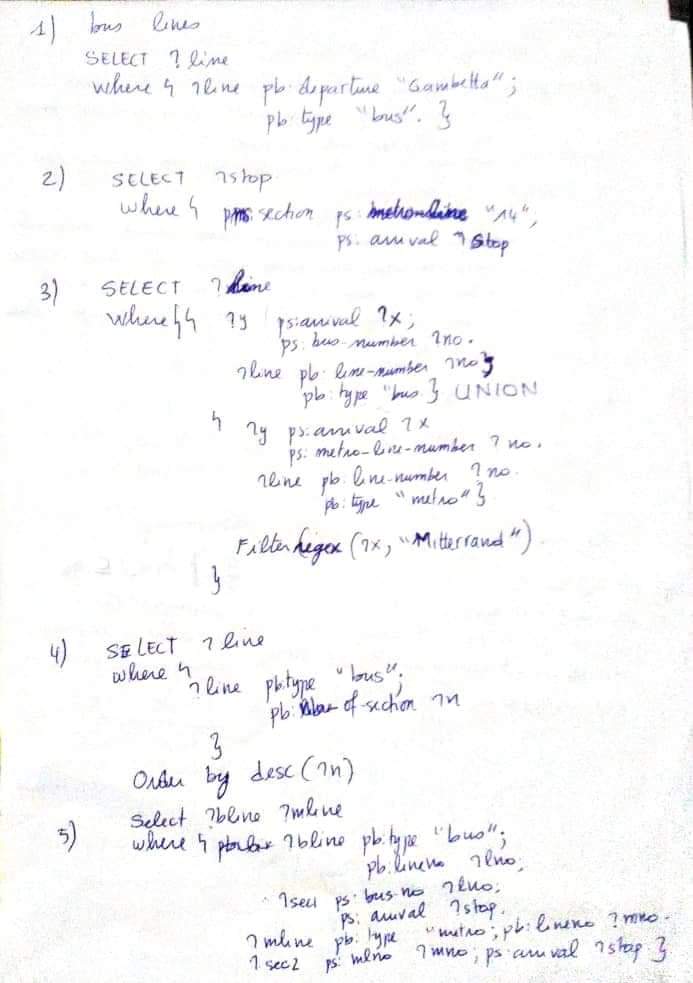 1) bus lines
SELECT ?line
where { ?line pb:departure "Gambetta";
pb:type "bus". }
2) SELECT ?stop
where { section ps: "14";
ps: arrival ?stop
3) SELECT ?line
where {{ ?y ps:arrival ?x;
ps: bus-number ?no.
?line pb: line-number ?no;
pb: type "bus } UNION
{ ?y ps: arrival ?x
ps: metro-line-number ?no.
?line pb: line-number ?no.
pb: type "metro" }
Filter (regex (?x, "Mitterrand")
}
4) SELECT ?line
where {
?line pb:type "bus";
pb: of-section ?n
}
Order by desc(?n)
5) Select ?bline ?mline
where { ?bline pb:type "bus";
pb:lineno ?lno;
?sec1 ps: bus-no ?lno;
ps: arrival ?stop.
?mline pb: type "metro"; pb: lineno ?mno.
?sec2 ps: mlno ?mno; ps: arrival ?stop }